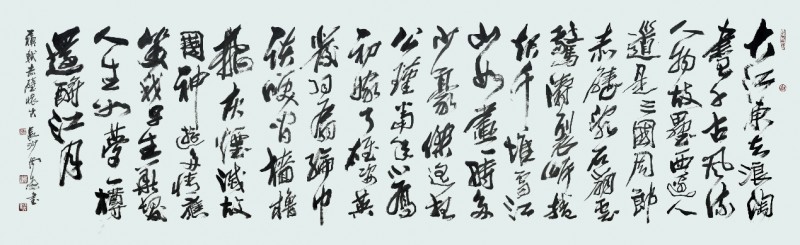 大江東去浪淘
盡千古風流
人物故壘西邊人
道是三國周郎
赤壁亂石崩雲
驚濤裂岸捲
起千堆雪江
山如畫一時多
少豪傑遙想
公瑾當年小喬
初嫁了雄姿英
發羽扇綸巾
談笑間檣櫓
灰煙滅故
國神遊多情應
笑我早生華髮
人生如夢一樽
還酹江月
蘇軾赤壁懷古
書